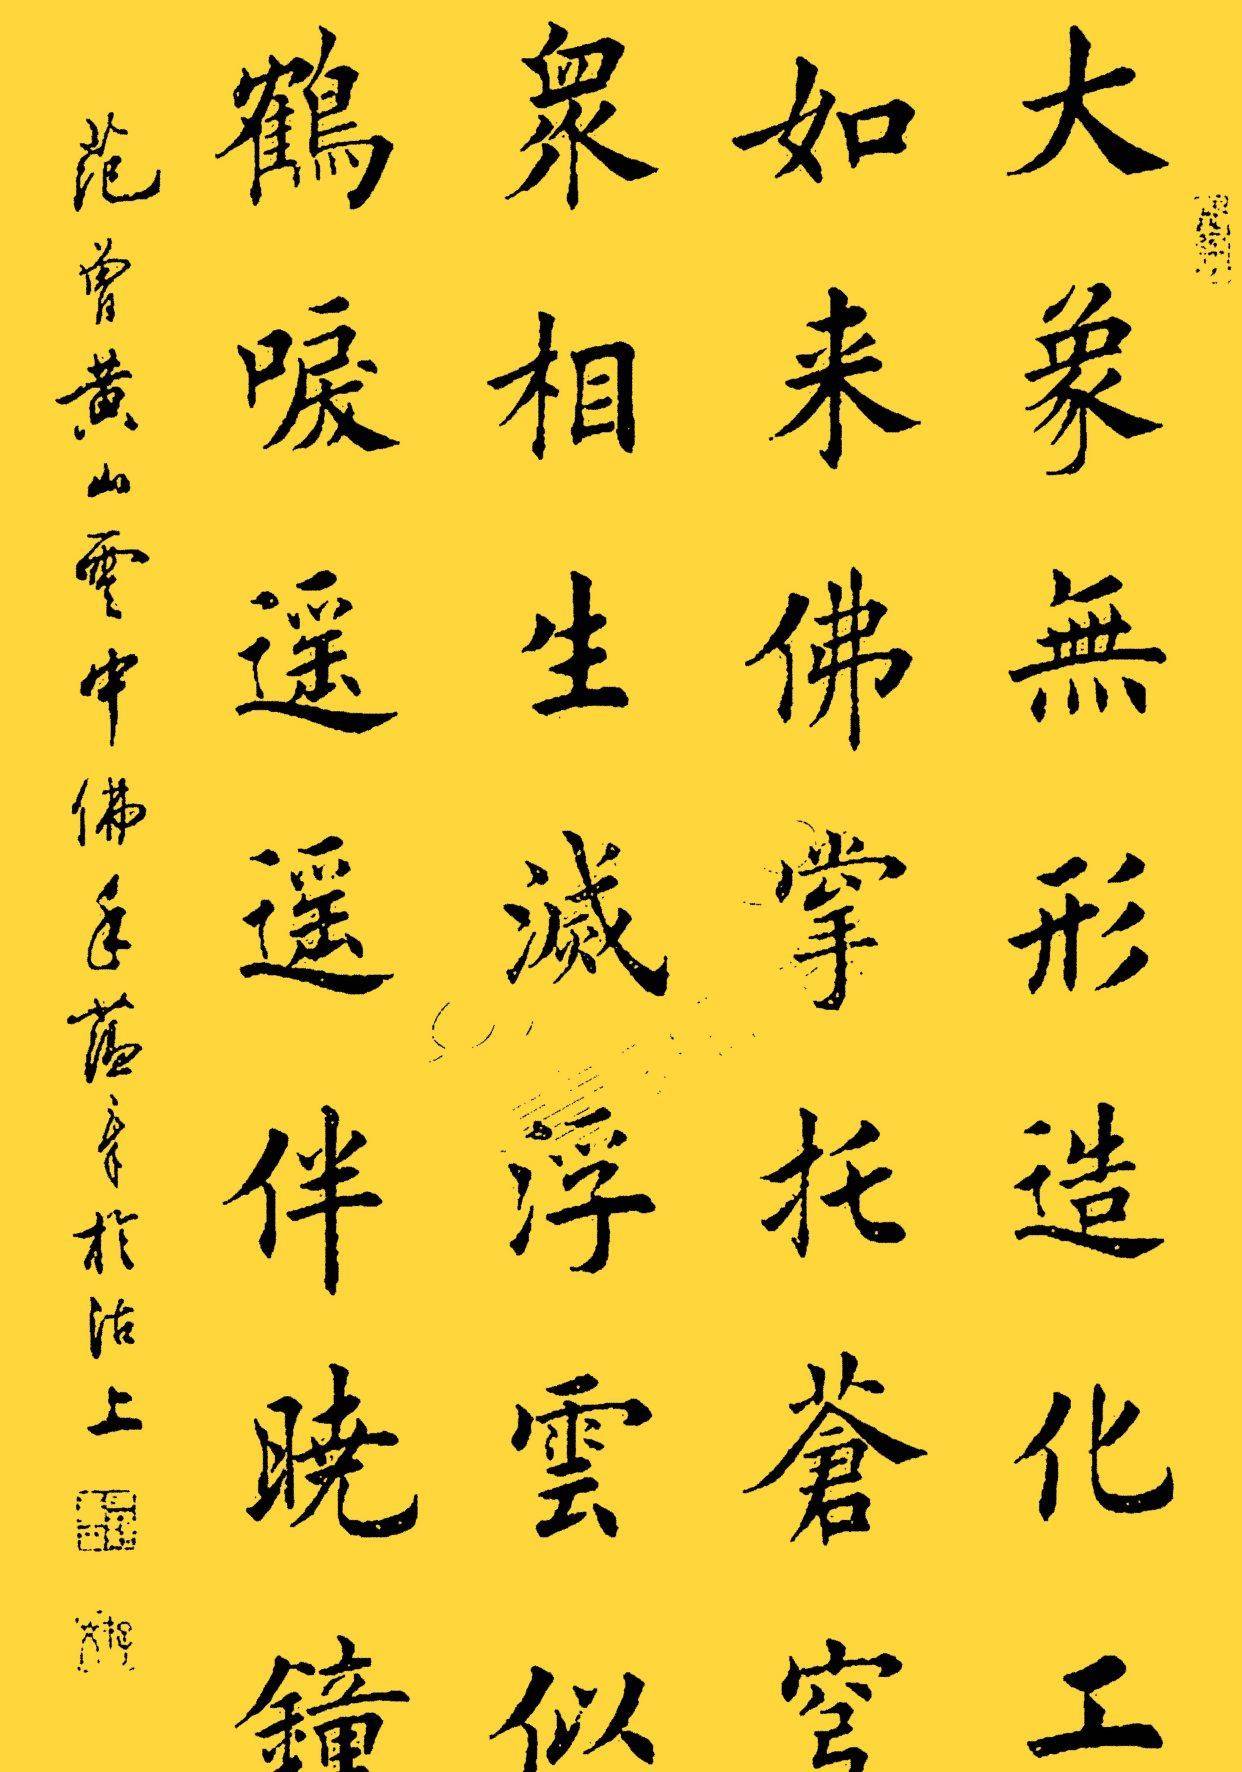 大象無形造化工
如来佛掌托蒼穹
衆相生滅浮雲似
鶴唳遥遥伴曉鐘
范曾黄山雲中佛手蕴章於沽上